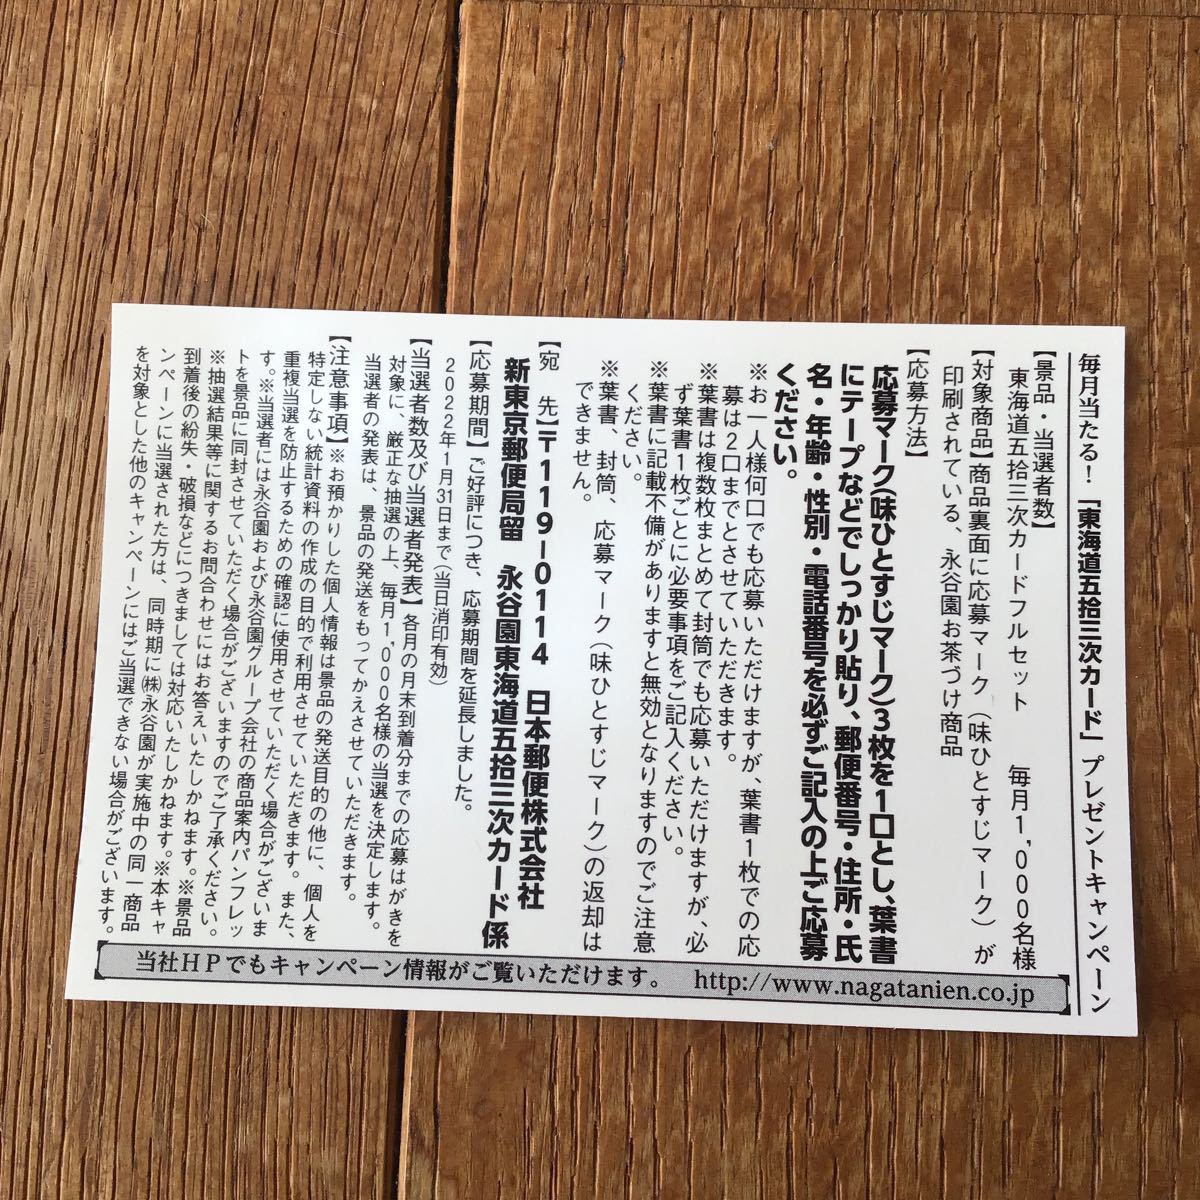 毎月当たる!「東海道五拾三次カード」プレゼントキャンペーン
【景品・当選者数】
東海道五拾三次カードフルセット 毎月1,000名様
【対象商品】商品裏面に応募マーク(味ひとすじマーク)が
印刷されている、永谷園お茶づけ商品
【応募方法】
応募マーク(味ひとすじマーク)3枚を1口とし、葉書
にテープなどでしっかり貼り、郵便番号・住所・氏
名・年齢・性別・電話番号を必ずご記入の上ご応募
ください。
※お一人様何口でも応募いただけますが、葉書1枚での応
募は2口までとさせていただきます。
※葉書は複数枚まとめて封筒でも応募いただけますが、必
ず葉書1枚ごとに必要事項をご記入ください。
※葉書に記載不備がありますと無効となりますのでご注意
ください。
※葉書、封筒、応募マーク(味ひとすじマーク)の返却は
できません。
【宛 先】〒119-0114 日本郵便株式会社
新東京郵便局留 永谷園東海道五拾三次カード係
【応募期間】ご好評につき、応募期間を延長しました。
2022年1月31日まで(当日消印有効)
【当選者数及び当選者発表】各月の月末到着分までの応募はがきを
対象に、厳正な抽選の上、毎月1,000名様の当選を決定します。
当選者の発表は、景品の発送をもってかえさせていただきます。
【注意事項】※お預かりした個人情報は景品の発送目的の他に、個人を
特定しない統計資料の作成の目的で利用させていただきます。また、
重複当選を防止するための確認に使用させていただく場合がございま
す。※当選者には永谷園および永谷園グループ会社の商品案内パンフレッ
トを景品に同封させていただく場合がございますのでご了承ください。
※抽選結果等に関するお問合わせにはお答えいたしかねます。※景品
到着後の紛失・破損などにつきましては対応いたしかねます。※本キャ
ンペーンに当選された方は、同時期に㈱永谷園が実施中の同一商品
を対象とした他のキャンペーンにはご当選できない場合がございます。
当社HPでもキャンペーン情報がご覧いただけます。 http://www.nagatanien.co.jp